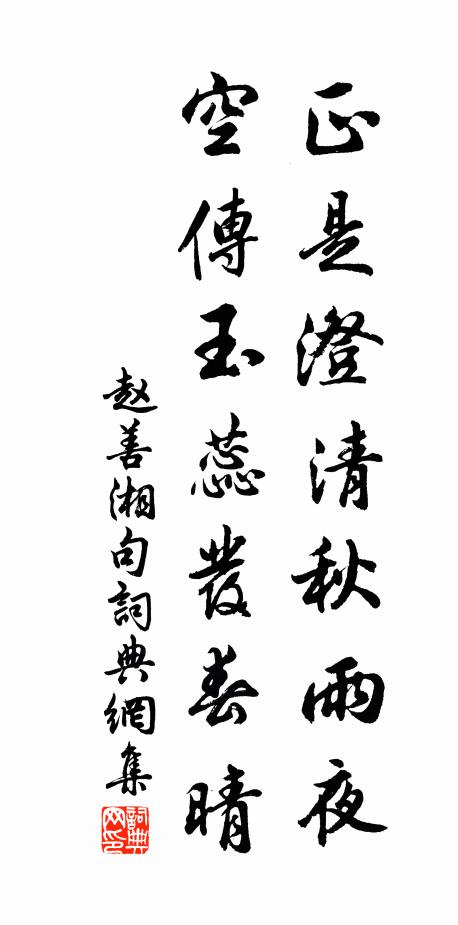 正是澄清秋雨夜
空傳玉蕊發春晴
赵善湘句詞典網集
詞典网印